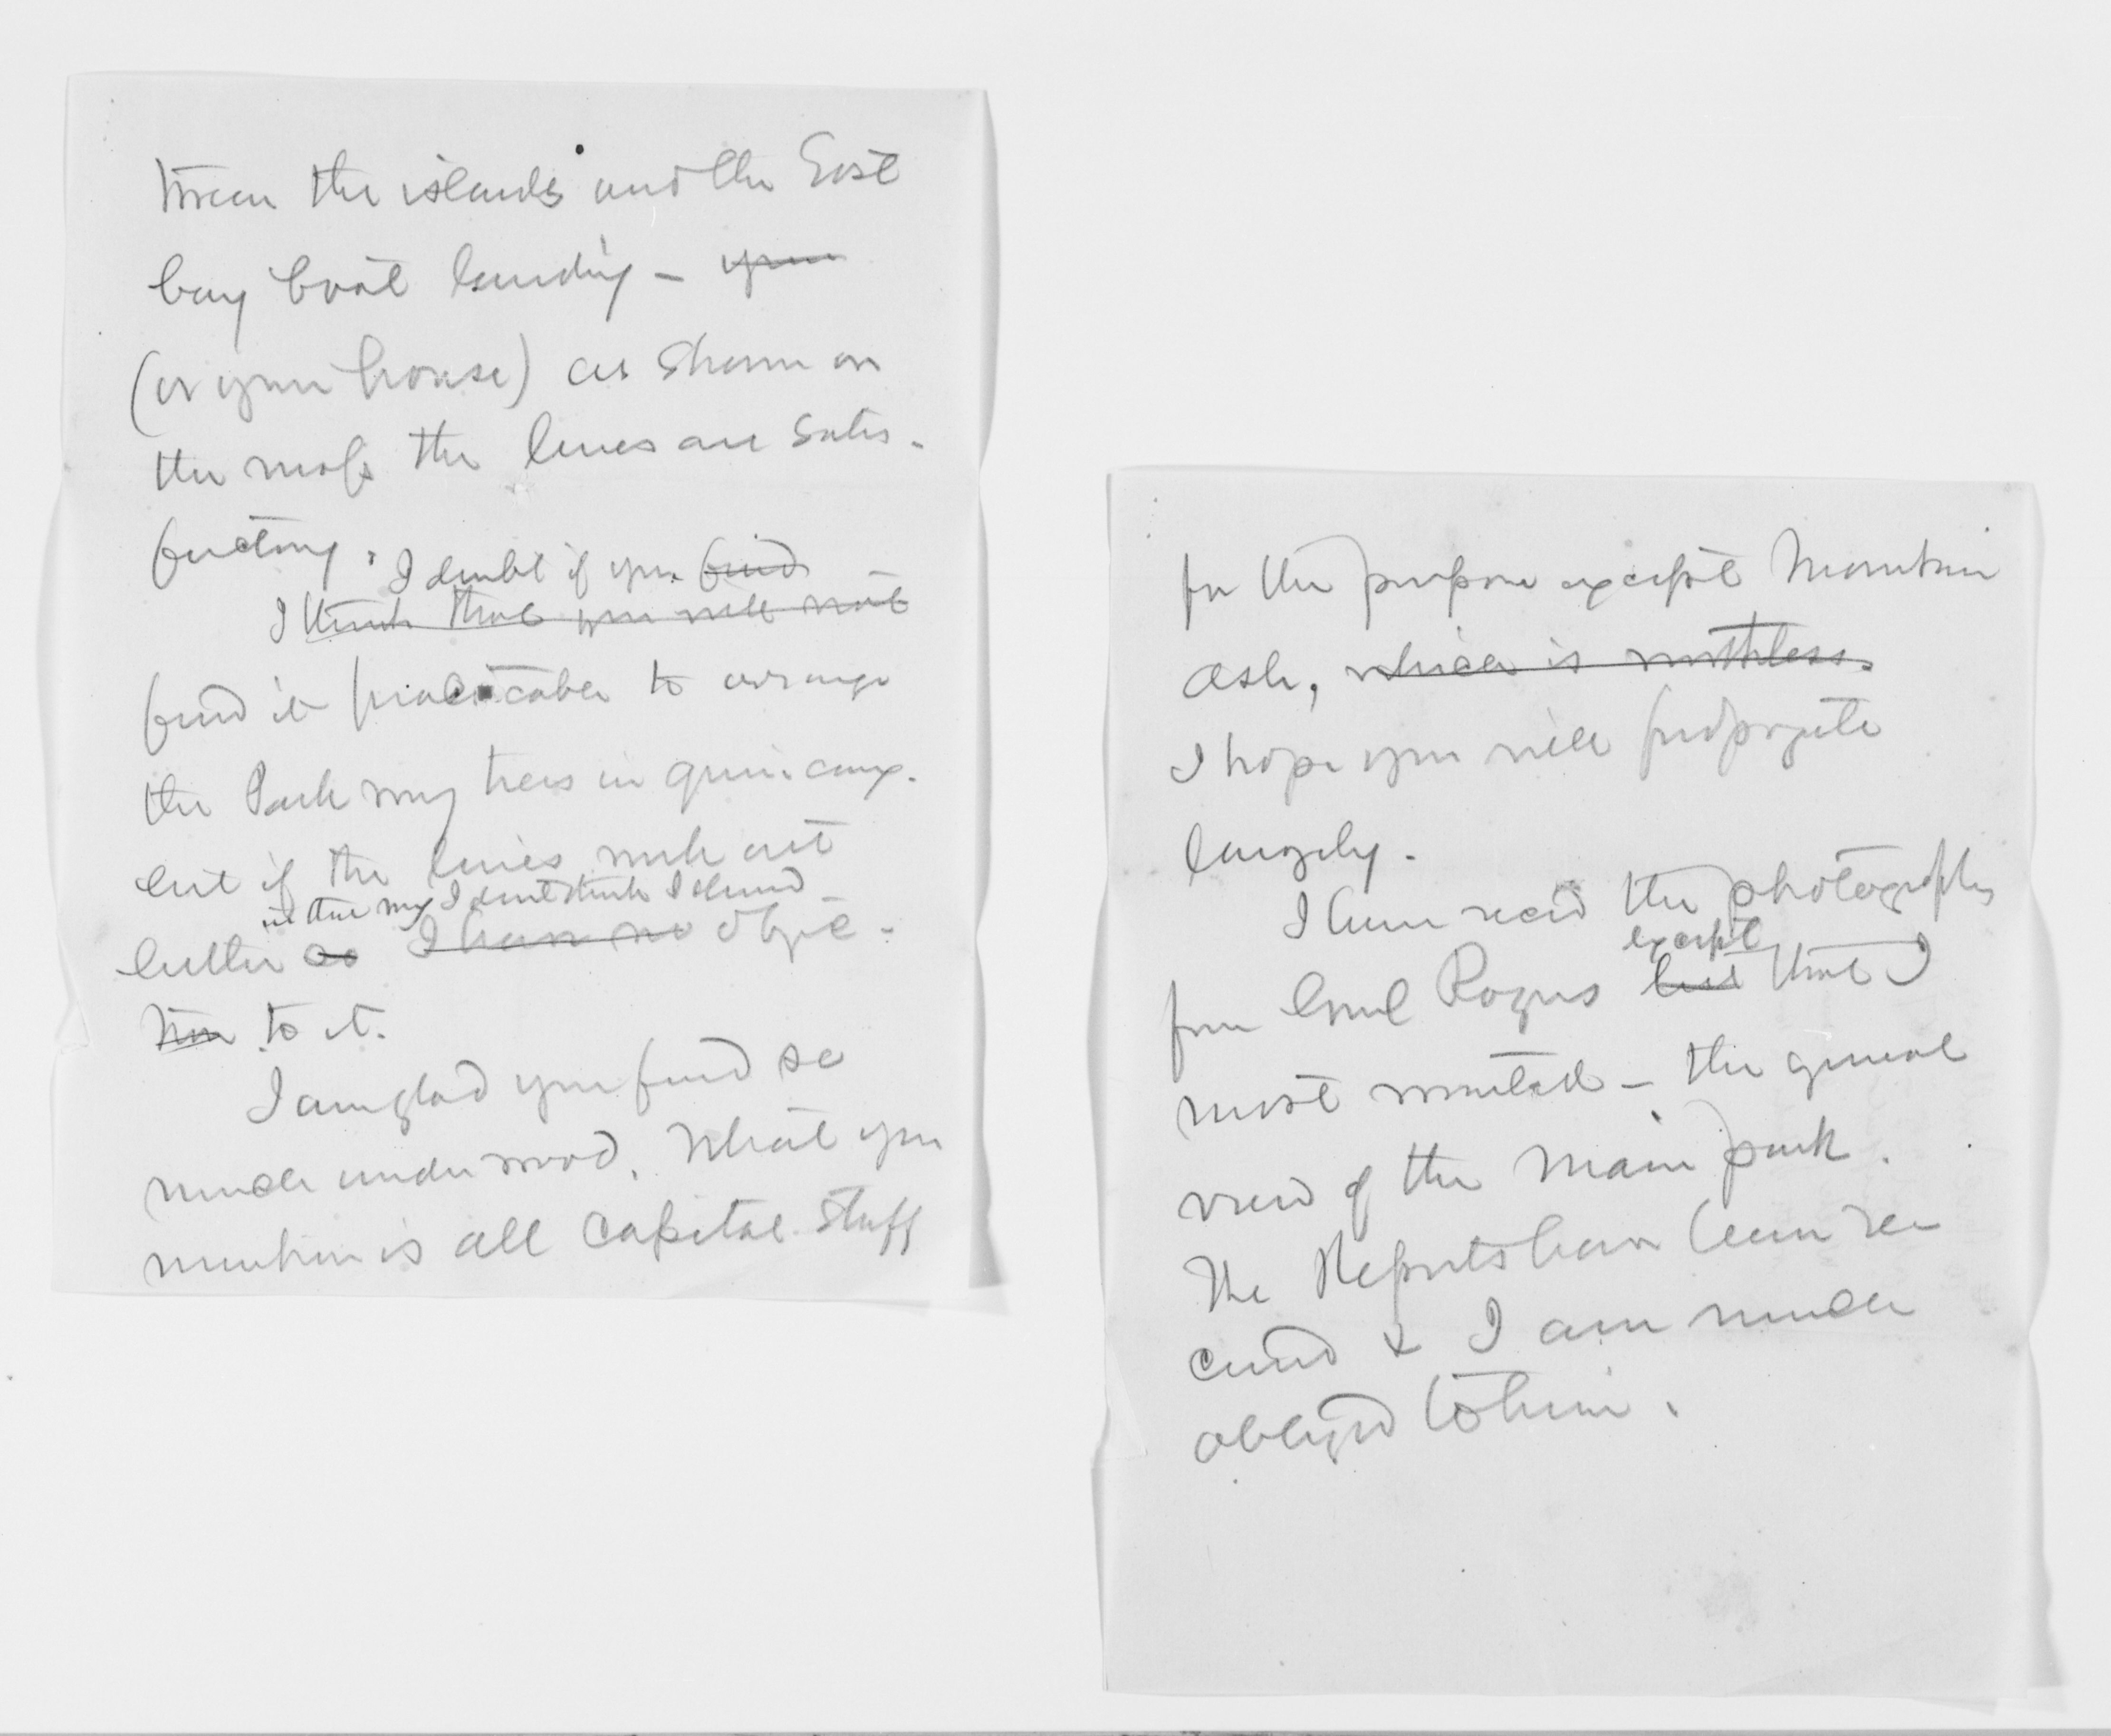 tween the islands and the East
bay boat landing – your
(or your house) as shown on
the map the lines are satis-
factory.
I doubt if you find
I think that you will not
find it practicable to arrange
the Park way trees in quincunx.
but if the lines work out
in that way I dont think I should
better so I have no objec-
tion to it.
I am glad you find so
much underwood. What you
mention is all capital stuff
for the purpose except Mountain
ash, which is worthless.
I hope you will propogate
largely.
I have recd the photographs
except
from Genl Rogers but that I
most wanted – the general
view of the Main park.
The Reports have been re
ceived & I am much
obliged to him.